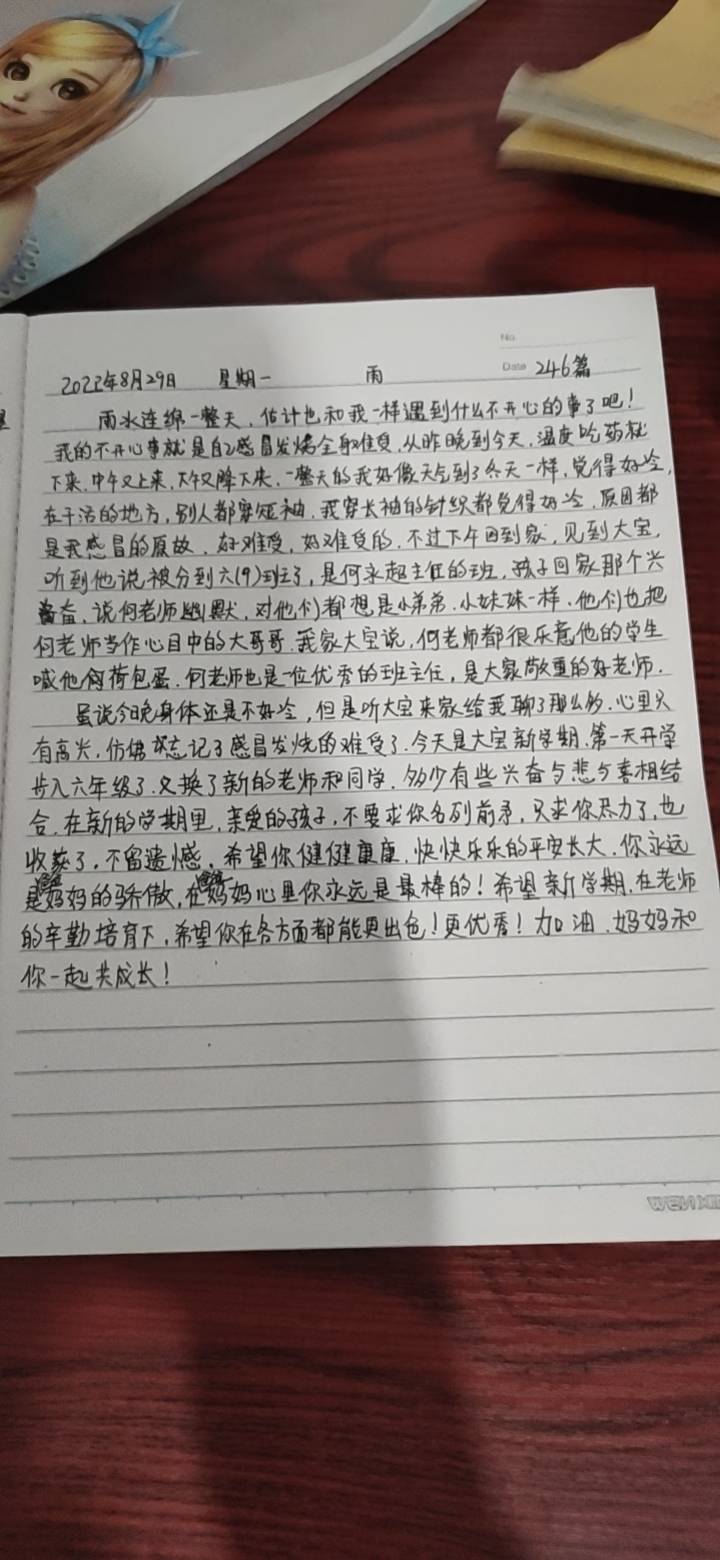 No.
Date 246篇
2022年8月29日 星期一 雨
雨水连绵一整天,估计也和我一样遇到什么不开心的事了吧!
我的不开心事就是自己感冒发烧全身难受,从昨晚到今天,温度吃药就
下来,中午又上来,下午又降下来,一整天的我好像天气到了冬天一样,觉得好冷,
在干活的地方,别人都穿短袖,我穿长袖的针织都觉得好冷,原因都
是我感冒的原故,好难受,好难受的,不过下午回到家,见到大宝,
听到他说被分到六(9)班了,是何永超主任的班,孩子回家那个兴
奋,说何老师幽默,对他们都想是小弟弟,小妹妹一样,他们也把
何老师当作心目中的大哥哥,我家大宝说,何老师都很乐意他的学生
喊他何荷包蛋,何老师也是一位优秀的班主任,是大家敬重的好老师.
虽说今晚身体还是不好冷,但是听大宝来家给我聊了那么多,心里只
有高兴,仿佛忘记了感冒发烧的难受了.今天是大宝新学期,第一天开学
步入六年级了,又换了新的老师和同学,多少有些兴奋与悲与喜相结
合,在新的学期里,亲爱的孩子,不要求你名列前矛,只求你尽力了,也
收获了,不留遗憾,希望你健健康康,快快乐乐的平安长大,你永远
是妈妈的骄傲,在妈妈心里你永远是最棒的!希望新学期,在老师
的辛勤培育下,希望你在各方面都能更出色!更优秀!加油,妈妈和
你一起共成长!